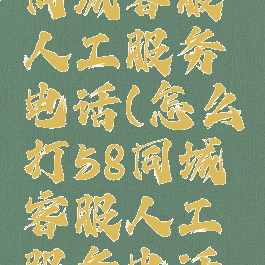 同城客服
人工服务
电话(怎么
打58同城
客服人工
服务电话